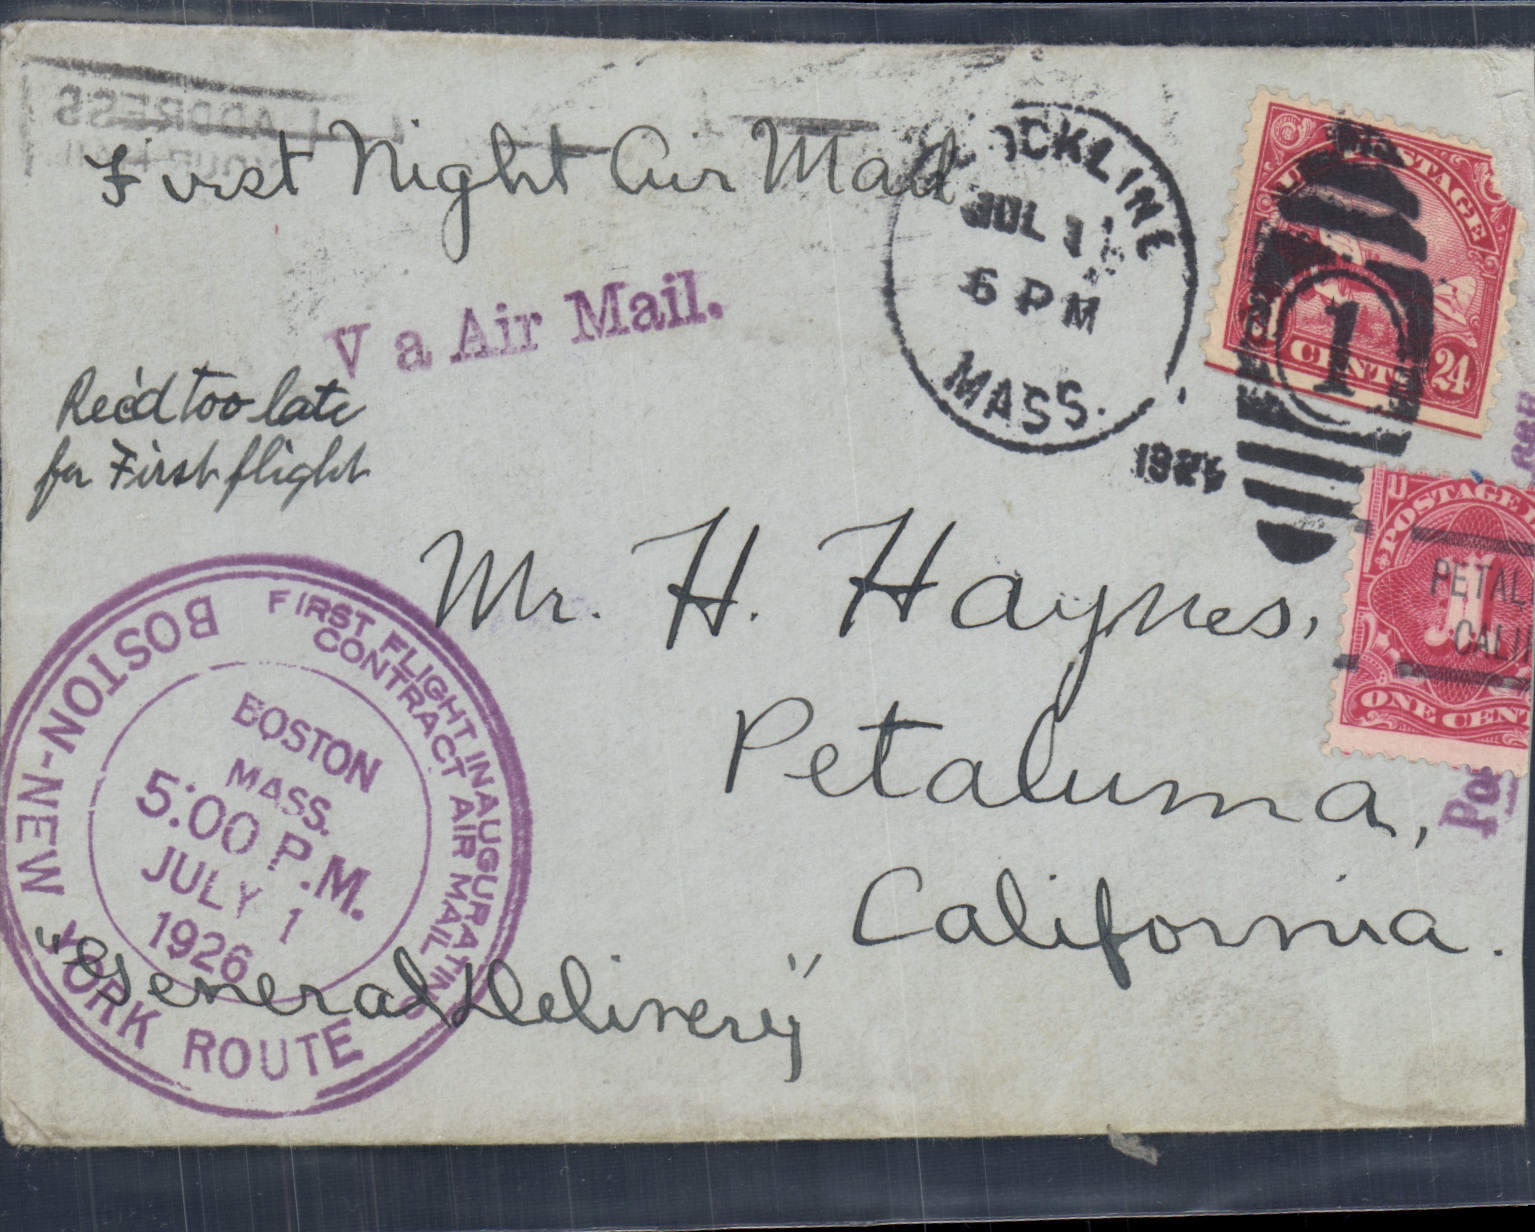 L ADDRESS
First Night Air Mail
V a Air Mail.
Rec'd too late
for First flight
OCKLINE
JUL 1
6 PM
MASS.
U POSTAGE
1
CENTS 24
Mr. H. Haynes,
Petaluma,
California.
"General Delivery"
FIRST FLIGHT INAUGURATING
CONTRACT AIR MAIL
BOSTON-NEW YORK ROUTE
BOSTON
MASS.
5:00 P.M.
JULY 1
1926
U
POSTAGE
1
PETAL
CALIF
ONE CENT
Po